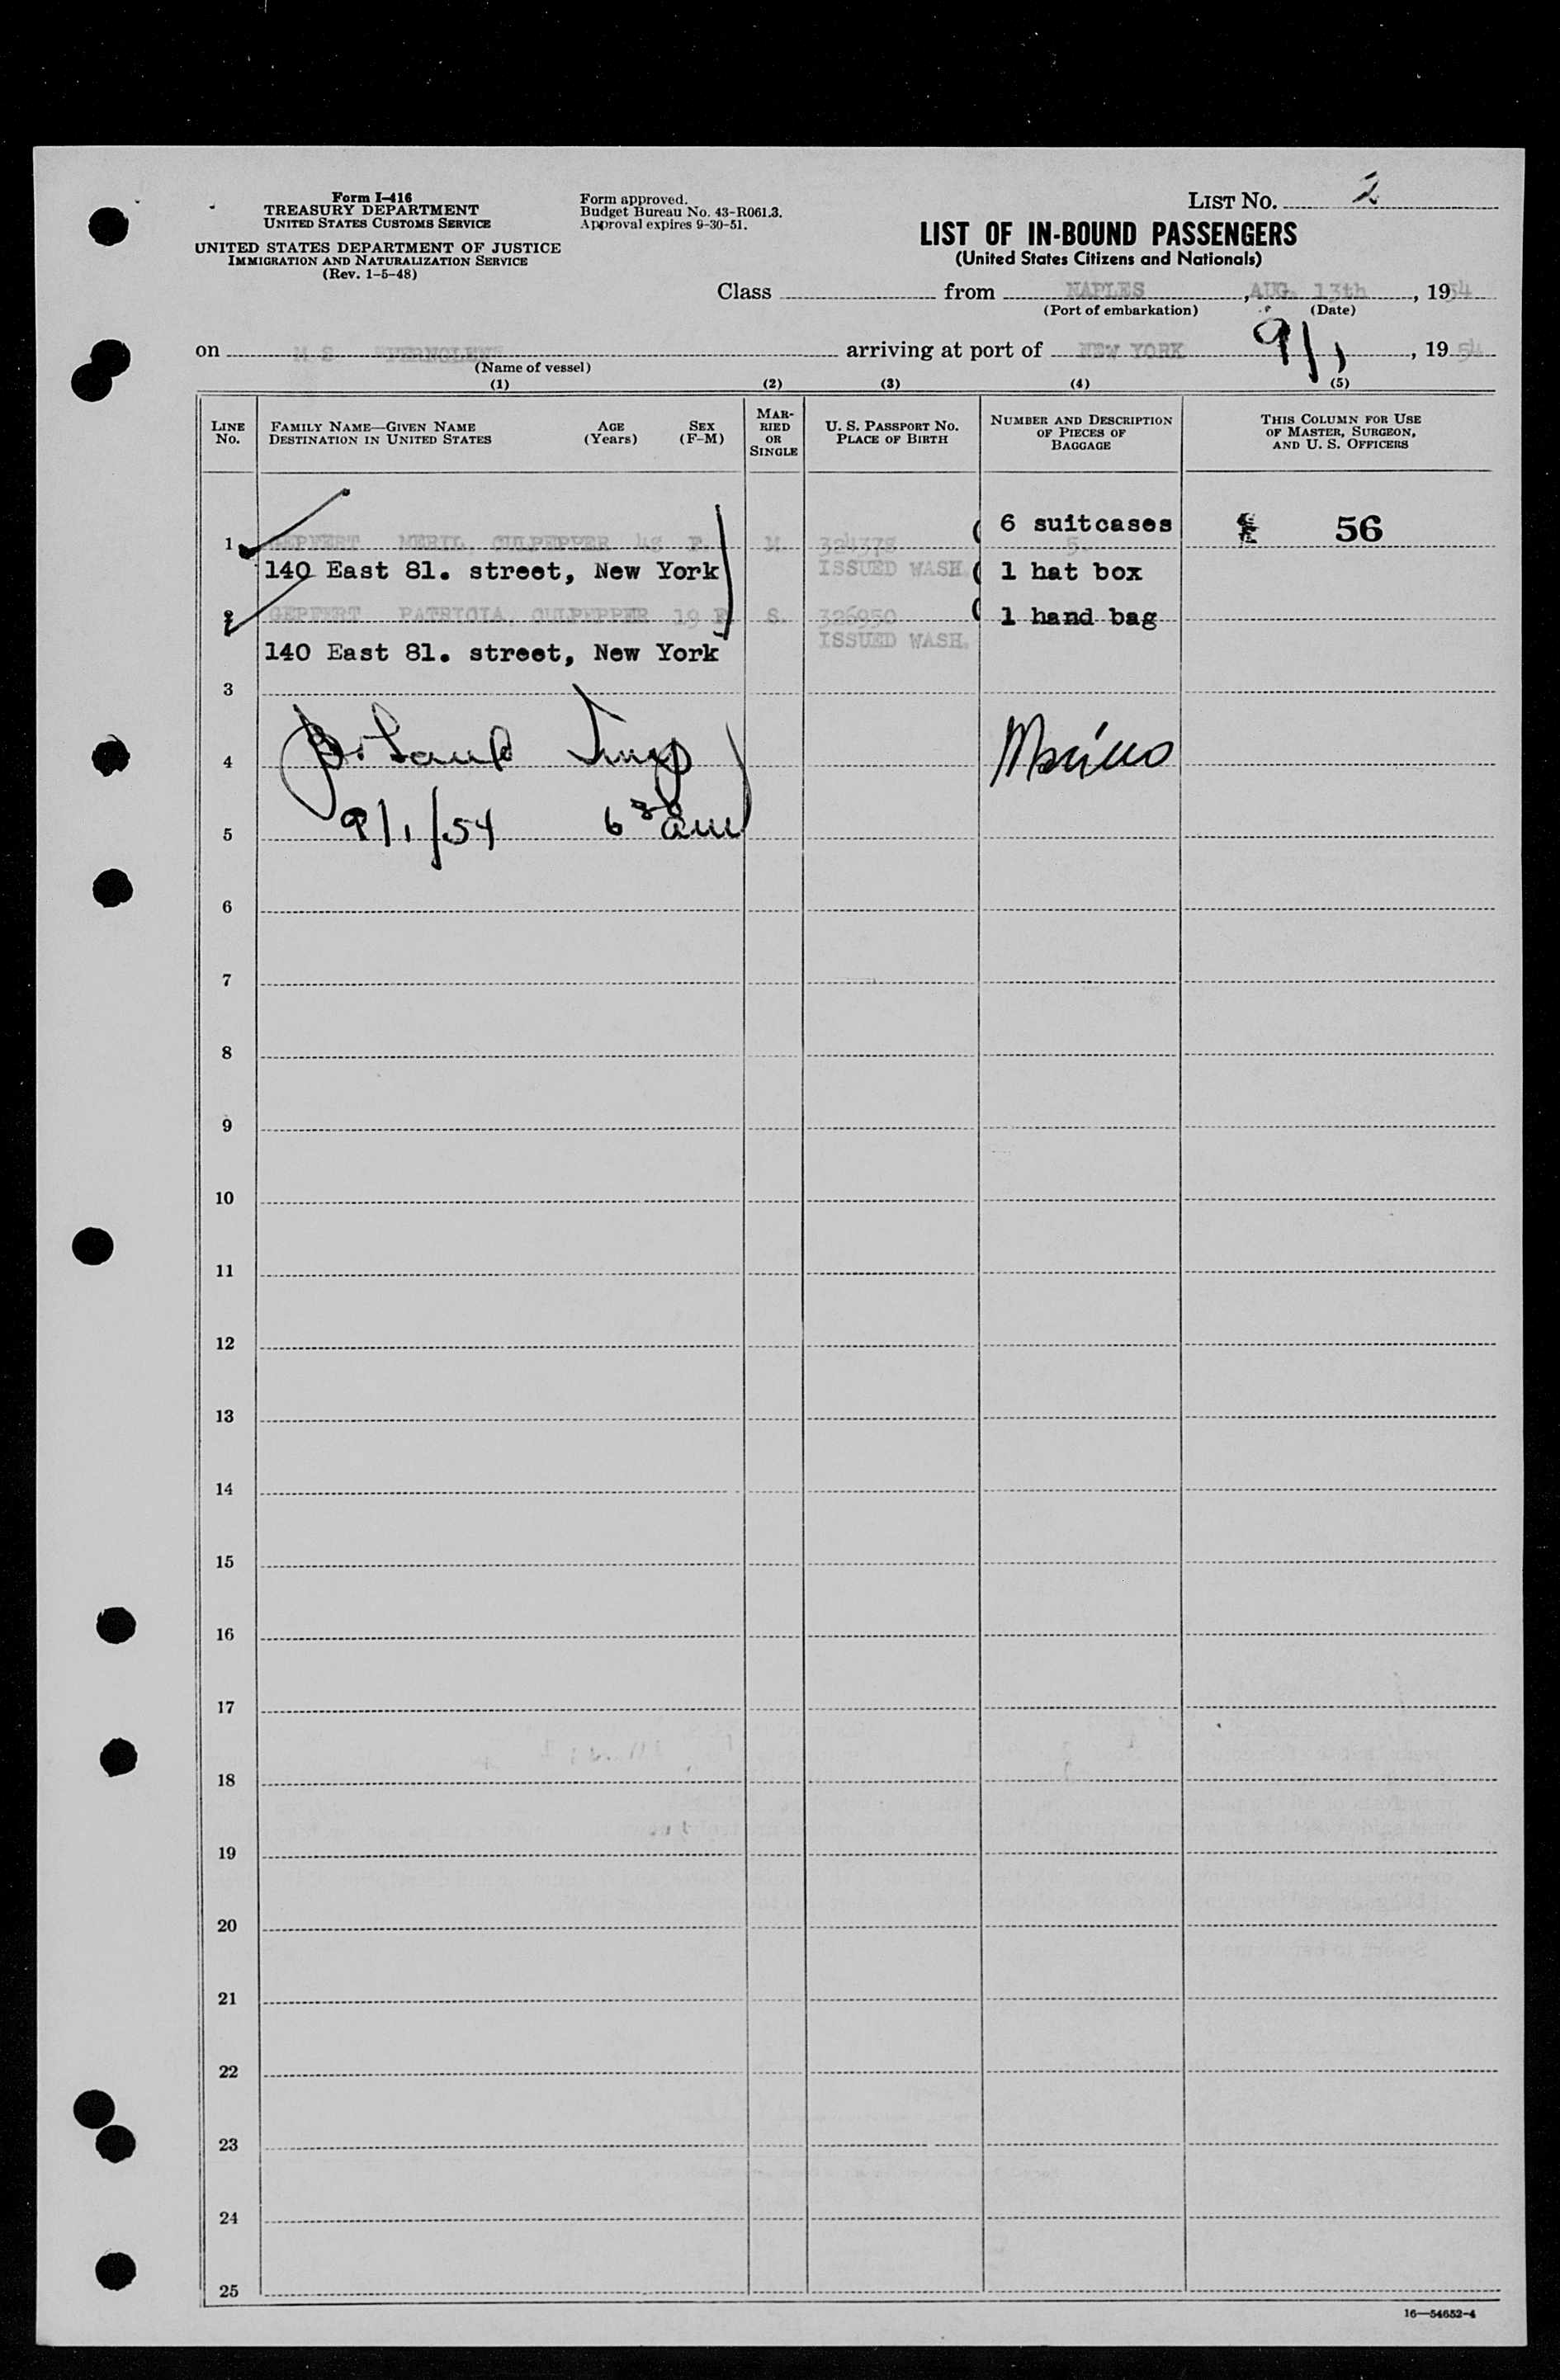 Form I-416
TREASURY DEPARTMENT
UNITED STATES CUSTOMS SERVICE
UNITED STATES DEPARTMENT OF JUSTICE
IMMIGRATION AND NATURALIZATION SERVICE
(Rev. 1-5-48)
Form approved.
Budget Bureau No. 43-R061.3.
Approval expires 9-30-51.
LIST No. 2
LIST OF IN-BOUND PASSENGERS
(United States Citizens and Nationals)
Class from NAPLES, AUG. 13th, 1954
(Port of embarkation) (Date)
on M S arriving at port of NEW YORK 9/1, 1954
(Name of vessel)
(1) (2) (3) (4) (5)
LINE No. FAMILY NAME—GIVEN NAME DESTINATION IN UNITED STATES AGE (Years) SEX (F-M) MARRIED OR SINGLE U. S. PASSPORT NO. PLACE OF BIRTH NUMBER AND DESCRIPTION OF PIECES OF BAGGAGE THIS COLUMN FOR USE OF MASTER, SURGEON, AND U. S. OFFICERS
6 suitcases 56
1 GEPFERT MERIL, CULPEPPER 48 F. M. 324378 5.
140 East 81. street, New York ISSUED WASH. 1 hat box
2 GEPFERT PATRICIA, CULPEPPER 19 F. S. 326950 1 hand bag
ISSUED WASH.
140 East 81. street, New York
3
4
5 9/1/54 6 30 am
6
7
8
9
10
11
12
13
14
15
16
17
18
19
20
21
22
23
24
25
16—54652-4